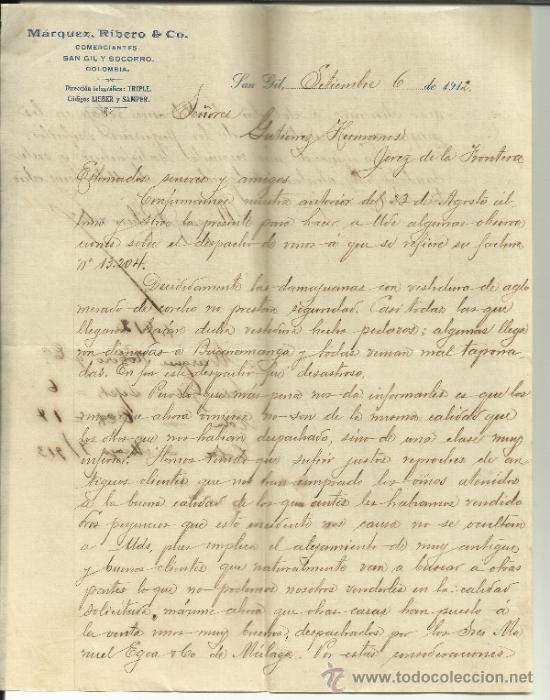 Márquez, Ribero & Co.
COMERCIANTES
SAN GIL Y SOCORRO.
COLOMBIA.
Dirección telegráfica: TRIPLE.
Códigos LIEBER y SAMPER.
San Gil, Setiembre 6 de 1912.
Señores
Gutiérrez Hermanos
Jerez de la Frontera
Estimados señores y amigos
Confirmamos nuestra anterior del 23 de Agosto úl
timo y sirve la presente para hacer a Uds algunas observa
ciones sobre el despacho de vinos á que se refiere su factura
Nº 13.204.
Decididamente las damajuanas con vestidura de aglo
merado de corcho no prestan seguridad. Casi todas las que
llegaron hacen dicha vestidura hecho pedazos; algunas llega
ron á Bucaramanga y todas venían mal tapona
das. En fin este despacho fue desastroso.
Pero lo que más pena nos da informarles es que los
vinos que ahora vinieron no son de la misma calidad que
los otros que nos habían despachado, sino de una clase muy
inferior. Hemos tenido que sufrir justos reproches de an
tiguos clientes que nos han comprado los vinos atenidos
á la buena calidad de los que antes les habíamos vendido
Los perjuicios que este incidente nos causa no se ocultan
a Uds, pues implica el alejamiento de muy antiguos
y buenos clientes que naturalmente van a buscar a otras
partes lo que no podemos nosotros venderles en la calidad
solicitada, máxime ahora que otras casas han puesto a
la venta vinos muy buenos, despachados por los Sres Ma
nuel Egea & Co de Málaga. Por estas consideraciones
www.todocoleccion.net